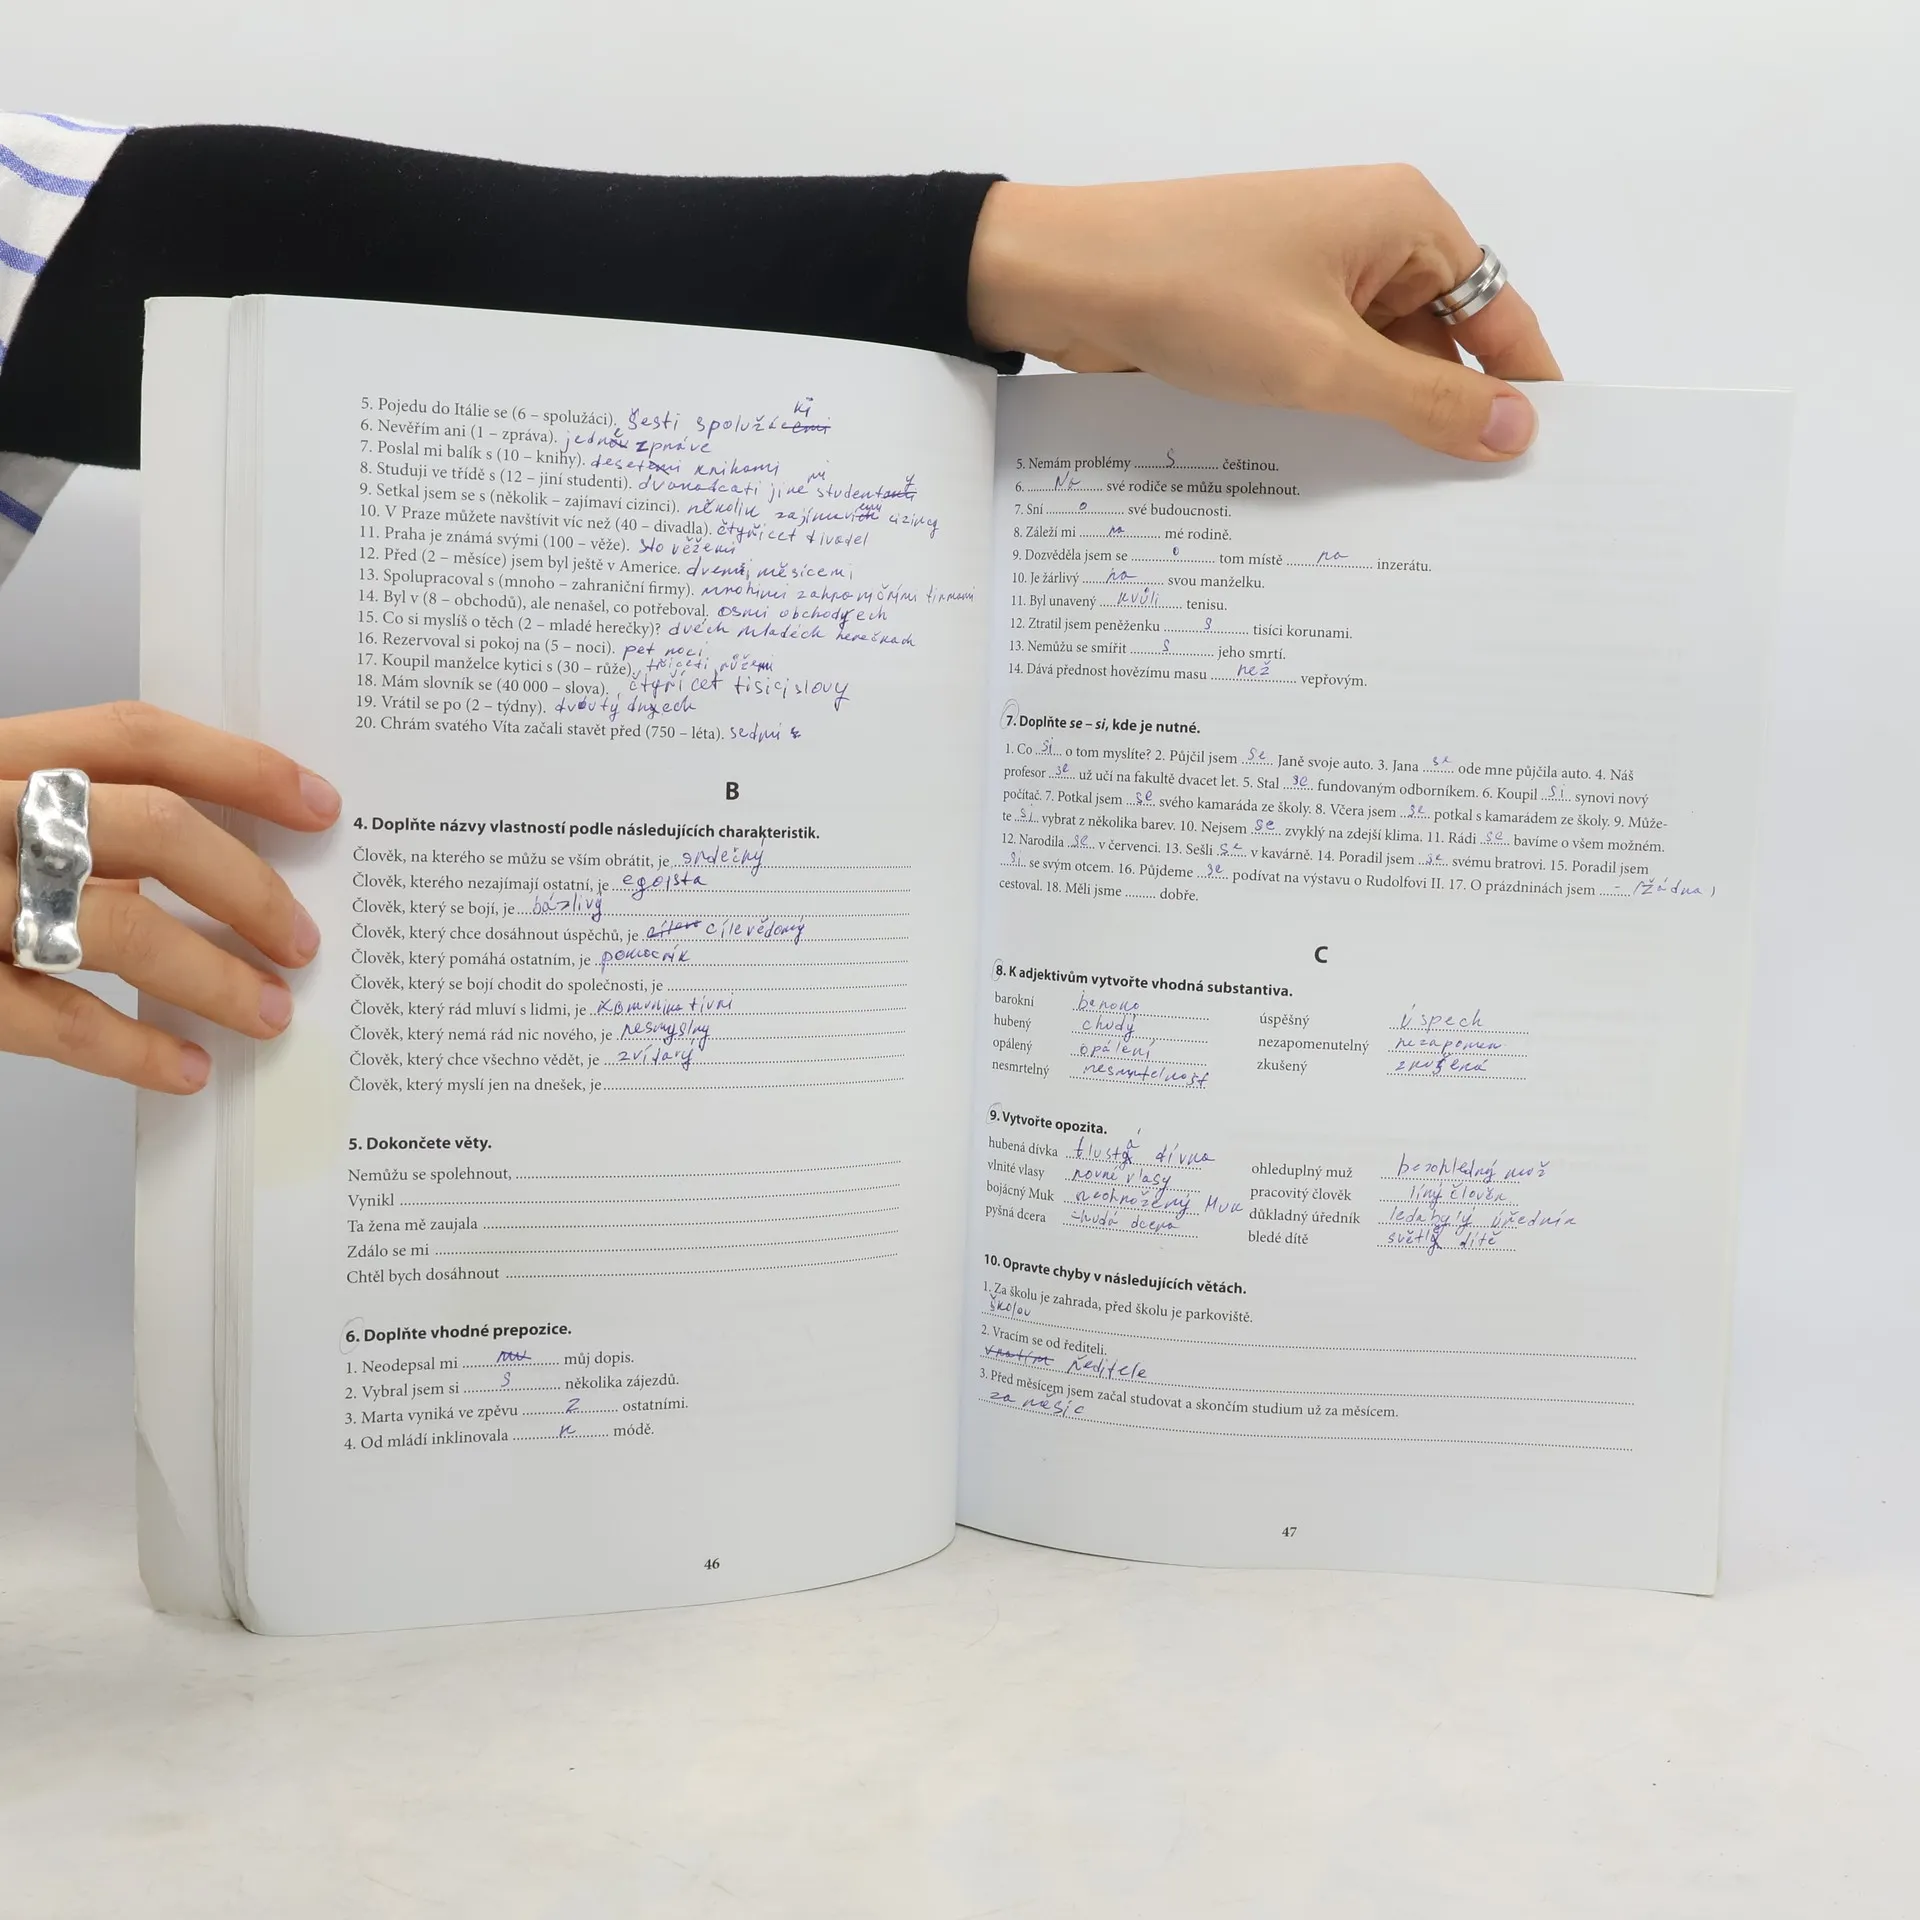 5. Pojedu do Itálie se (6 – spolužáci). šesti spolužáki
6. Nevěřím ani (1 – zpráva). jedné zprávě
7. Poslal mi balík s (10 – knihy). deseti knihami
8. Studuji ve třídě s (12 – jiní studenti). dvanácti jinými studenty
9. Setkal jsem se s (několik – zajímaví cizinci). několik
10. V Praze můžete navštívit víc než (40 – divadla). čtyřicet divadel
11. Praha je známá svými (100 – věže). sto věžemi
12. Před (2 – měsíce) jsem byl ještě v Americe. měsícemi
13. Spolupracoval s (mnoho – zahraniční firmy). firmami
14. Byl v (8 – obchodů), ale nenašel, co potřeboval. osmi obchodyech
15. Co si myslíš o těch (2 – mladé herečky)? dvéch mladéch herečkach
16. Rezervoval si pokoj na (5 – noci). pět noci
17. Koupil manželce kytici s (30 – růže). třiceti růžemi
18. Mám slovník se (40 000 – slova). čtyřicet tisíci slovy
19. Vrátil se po (2 – týdny).
20. Chrám svatého Víta začali stavět před (750 – léta). sedmi s
B
4. Doplňte názvy vlastností podle následujících charakteristik.
Člověk, na kterého se můžu se vším obrátit, je srdečný
Člověk, kterého nezajímají ostatní, je egoista
Člověk, který se bojí, je bázlivý
Člověk, který chce dosáhnout úspěchů, je cílevědomý
Člověk, který pomáhá ostatním, je pomocník
Člověk, který se bojí chodit do společnosti, je
Člověk, který rád mluví s lidmi, je komunikativní
Člověk, který nemá rád nic nového, je nesmyslny
Člověk, který chce všechno vědět, je zvídavý
Člověk, který myslí jen na dnešek, je
5. Dokončete věty.
Nemůžu se spolehnout,
Vynikl
Ta žena mě zaujala
Zdálo se mi
Chtěl bych dosáhnout
6. Doplňte vhodné prepozice.
1. Neodepsal mi můj dopis.
2. Vybral jsem si s několika zájezdů.
3. Marta vyniká ve zpěvu z ostatními.
4. Od mládí inklinovala k módě.
46
5. Nemám problémy s češtinou.
6. Na své rodiče se můžu spolehnout.
7. Sní o své budoucnosti.
8. Záleží mi na mé rodině.
9. Dozvěděla jsem se o tom místě na inzerátu.
10. Je žárlivý na svou manželku.
11. Byl unavený kvůli tenisu.
12. Ztratil jsem peněženku s tisíci korunami.
13. Nemůžu se smířit s jeho smrtí.
14. Dává přednost hovězímu masu než vepřovým.
7. Doplňte se – si, kde je nutné.
1. Co si o tom myslíte? 2. Půjčil jsem se Janě svoje auto. 3. Jana se ode mne půjčila auto. 4. Náš
profesor se už učí na fakultě dvacet let. 5. Stal se fundovaným odborníkem. 6. Koupil si synovi nový
počítač. 7. Potkal jsem se svého kamaráda ze školy. 8. Včera jsem se potkal s kamarádem ze školy. 9. Může-
te si vybrat z několika barev. 10. Nejsem se zvyklý na zdejší klima. 11. Rádi se bavíme o všem možném.
12. Narodila se v červenci. 13. Sešli se v kavárně. 14. Poradil jsem se svému bratrovi. 15. Poradil jsem
si se svým otcem. 16. Půjdeme se podívat na výstavu o Rudolfovi II. 17. O prázdninách jsem - (žádna)
cestoval. 18. Měli jsme dobře.
C
8. K adjektivům vytvořte vhodná substantiva.
barokní baroko úspěšný úspech
hubený chudý nezapomenutelný nezapomen
opálený opálení zkušený zkušená
nesmrtelný nesmrtelnost
9. Vytvořte opozita.
hubená dívka tlustá dívka ohleduplný muž bezohledný muž
vlnité vlasy rovné vlasy pracovitý člověk líný člověk
bojácný Muk Muk důkladný úředník ledabylý úředník
pyšná dcera chudá dcera bledé dítě světlý dítě
10. Opravte chyby v následujících větách.
1. Za školu je zahrada, před školu je parkoviště.
školou
2. Vracím se od řediteli.
vratím ředitele
3. Před měsícem jsem začal studovat a skončím studium už za měsícem.
za měsíc
47